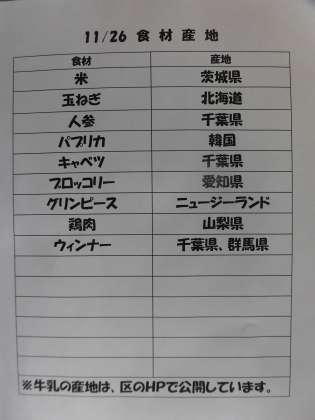 11/26 食材産地
食材 産地
米 茨城県
玉ねぎ 北海道
人参 千葉県
パプリカ 韓国
キャベツ 千葉県
ブロッコリー 愛知県
グリンピース ニュージーランド
鶏肉 山梨県
ウィンナー 千葉県、群馬県
※牛乳の産地は、区のHPで公開しています。